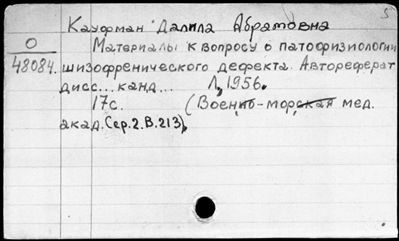 Кауфман Далила Абрамовна
О Материалы к вопросу о патофизиологии
48084. шизофренического дефекта. Автореферат
дисс... канд... Л, 1956.
17с. (Военно-морская мед.
акад. Сер.2.В.213).